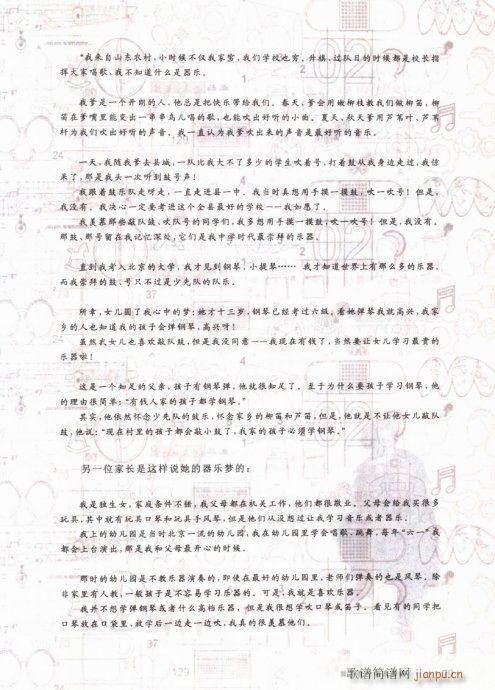 “我来自山东农村，小时候不仅我家穷，我们学校也穷。升旗、过队日的时候都是校长指
挥大家唱歌，我不知道什么是器乐。
我爹是一个开朗的人，他总是把快乐带给我们。春天，爹会用嫩柳枝教我们做柳笛，柳
笛在爹嘴里能变出一串串鸟儿唱的歌，也能吹出好听的小曲。夏天、秋天爹用芦苇叶、芦苇
杆为我们吹出好听的声音。我一直认为我爹吹出来的声音是最好听的音乐。
一天，我随我爹去县城，一队比我大不了多少的学生吹着号，打着鼓从我身边走过，我惊
呆了，那是我头一次听到鼓号声！
我跟着鼓乐队走呀走，一直走进县一中。我当时真想用手摸一摸鼓，吹一吹号！但是，
我没有。我决心一定要考进这个全县最好的学校——我如愿了。
我羡慕那些敲队鼓、吹队号的同学们，我多想用手摸一摸鼓，吹一吹号！但是，我没有。
那鼓、那号留在我记忆深处，它们是我中学时代最崇拜的乐器。
直到我考入北京的大学，我才见到钢琴、小提琴……我才知道世界上有那么多的乐器，
而我崇拜的鼓、号只不过是少先队的队乐。
所幸，女儿圆了我心中的梦：她才十三岁，钢琴已经考过六级。看她弹琴我就高兴，我家
乡的人也知道我的孩子会弹钢琴，高兴呀！
虽然我女儿也喜欢敲队鼓，但是我没同意——我现在有钱了，当然要让女儿学习最贵的
乐器啦！
这是一个知足的父亲，孩子有钢琴弹，他就很知足了。至于为什么要孩子学习钢琴，他
的理由很简单：“有钱人家的孩子都学钢琴。”
其实，他依然怀念少先队的鼓乐，怀念家乡的柳笛和芦笛，但是，他就是不让他女儿敲队
鼓，他说：“现在村里的孩子都会敲小鼓了，我家的孩子必须学钢琴。”
另一位家长是这样说她的器乐梦的：
我是独生女，家庭条件不错，我父母都在机关工作，他们都很敬业。父母会给我买很多
玩具，其中就有玩具口琴和玩具手风琴，但是他们从没想过让我学习音乐或者器乐。
我上的幼儿园是当时北京一流的幼儿园，我在幼儿园里学会唱歌、跳舞，每年“六一”我
都会上台演出，那是我和父母最开心的时候。
那时的幼儿园是不教乐器演奏的，即使在最好的幼儿园里，老师们弹奏的也是风琴。除
非家里有人教，一般孩子是不容易学习乐器的。可是，我就是喜欢乐器。
我并不想学弹钢琴或者什么高档乐器，但是我很想学吹口琴或笛子。看见有的同学把
口琴放在口袋里，放学后一边走一边吹，我真的很羡慕他们。
歌谱简谱网
jianpu.cn